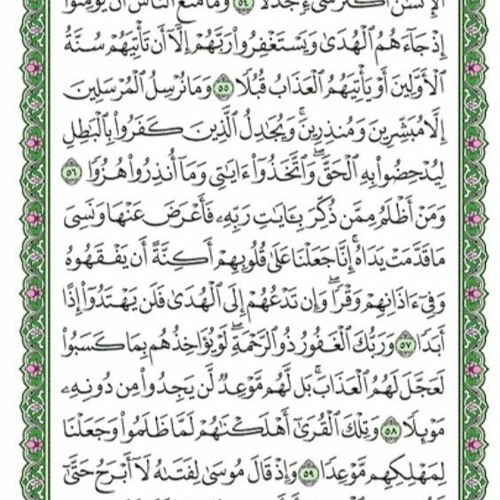 ٱلْإِنسَٰنُ أَكْثَرَ شَىْءٍ جَدَلًا ٥٤ وَمَا مَنَعَ ٱلنَّاسَ أَن يُؤْمِنُوٓا۟
إِذْ جَآءَهُمُ ٱلْهُدَىٰ وَيَسْتَغْفِرُوا۟ رَبَّهُمْ إِلَّآ أَن تَأْتِيَهُمْ سُنَّةُ
ٱلْأَوَّلِينَ أَوْ يَأْتِيَهُمُ ٱلْعَذَابُ قُبُلًا ٥٥ وَمَا نُرْسِلُ ٱلْمُرْسَلِينَ
إِلَّا مُبَشِّرِينَ وَمُنذِرِينَ ۚ وَيُجَٰدِلُ ٱلَّذِينَ كَفَرُوا۟ بِٱلْبَٰطِلِ
لِيُدْحِضُوا۟ بِهِ ٱلْحَقَّ ۖ وَٱتَّخَذُوٓا۟ ءَايَٰتِى وَمَآ أُنذِرُوا۟ هُزُوًا ٥٦
وَمَنْ أَظْلَمُ مِمَّن ذُكِّرَ بِـَٔايَٰتِ رَبِّهِۦ فَأَعْرَضَ عَنْهَا وَنَسِىَ
مَا قَدَّمَتْ يَدَاهُ ۚ إِنَّا جَعَلْنَا عَلَىٰ قُلُوبِهِمْ أَكِنَّةً أَن يَفْقَهُوهُ
وَفِىٓ ءَاذَانِهِمْ وَقْرًا ۖ وَإِن تَدْعُهُمْ إِلَى ٱلْهُدَىٰ فَلَن يَهْتَدُوٓا۟ إِذًا
أَبَدًا ٥٧ وَرَبُّكَ ٱلْغَفُورُ ذُو ٱلرَّحْمَةِ ۖ لَوْ يُؤَاخِذُهُم بِمَا كَسَبُوا۟
لَعَجَّلَ لَهُمُ ٱلْعَذَابَ ۚ بَل لَّهُم مَّوْعِدٌ لَّن يَجِدُوا۟ مِن دُونِهِۦ
مَوْئِلًا ٥٨ وَتِلْكَ ٱلْقُرَىٰٓ أَهْلَكْنَٰهُمْ لَمَّا ظَلَمُوا۟ وَجَعَلْنَا
لِمَهْلِكِهِم مَّوْعِدًا ٥٩ وَإِذْ قَالَ مُوسَىٰ لِفَتَىٰهُ لَآ أَبْرَحُ حَتَّىٰٓ